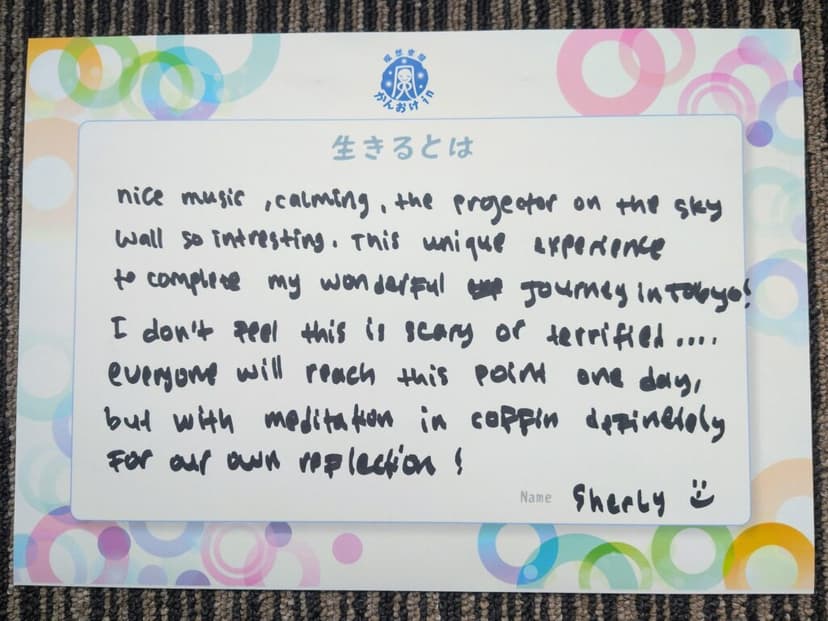 瞑想空間
かんおけin
生きるとは
nice music, calming, the projector on the sky
wall so intresting. This unique experience
to complete my wonderful Journey in Tokyo!
I don't feel this is scary or terrified....
everyone will reach this point one day,
but with meditation in coffin definetely
for our own reflection!
Name Sherly